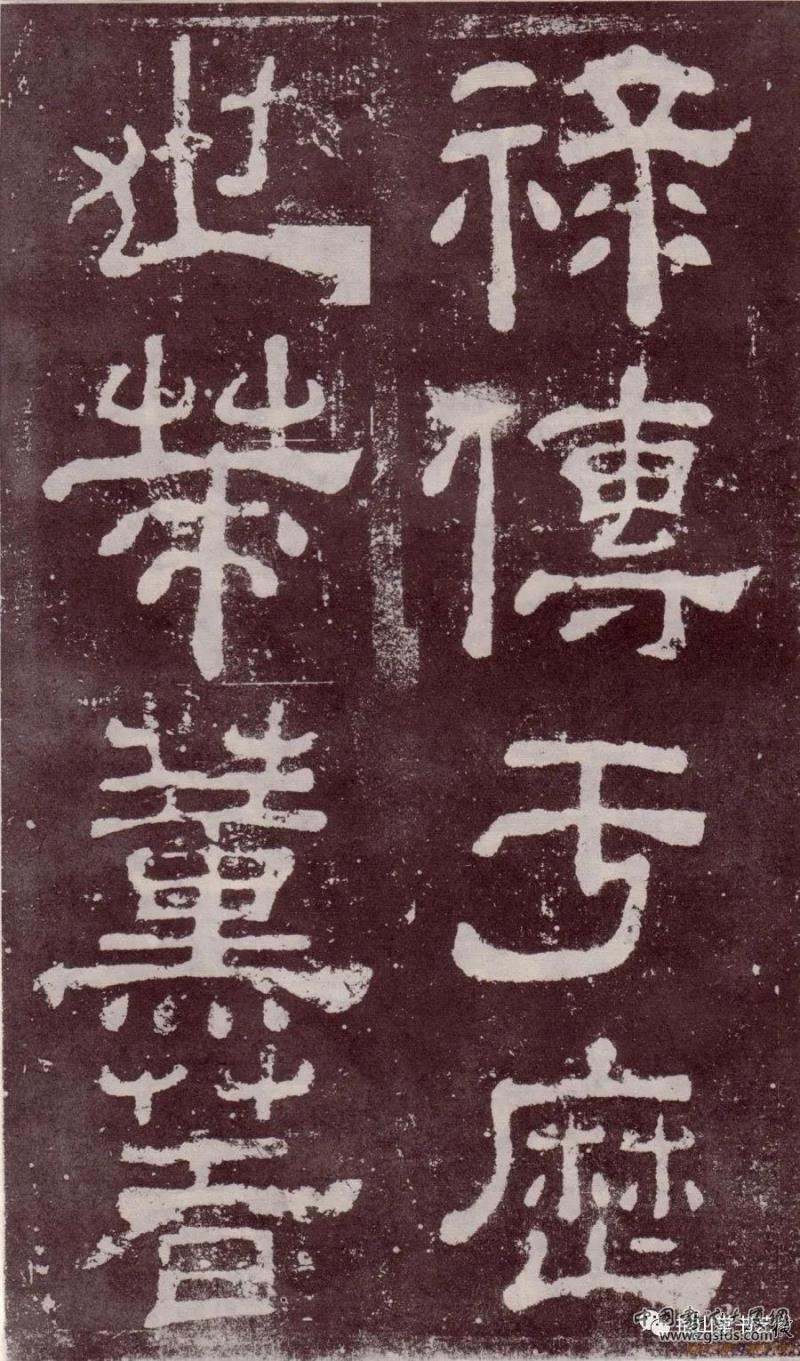 祿傳于歷
世策薰著
www.zgsfds.com